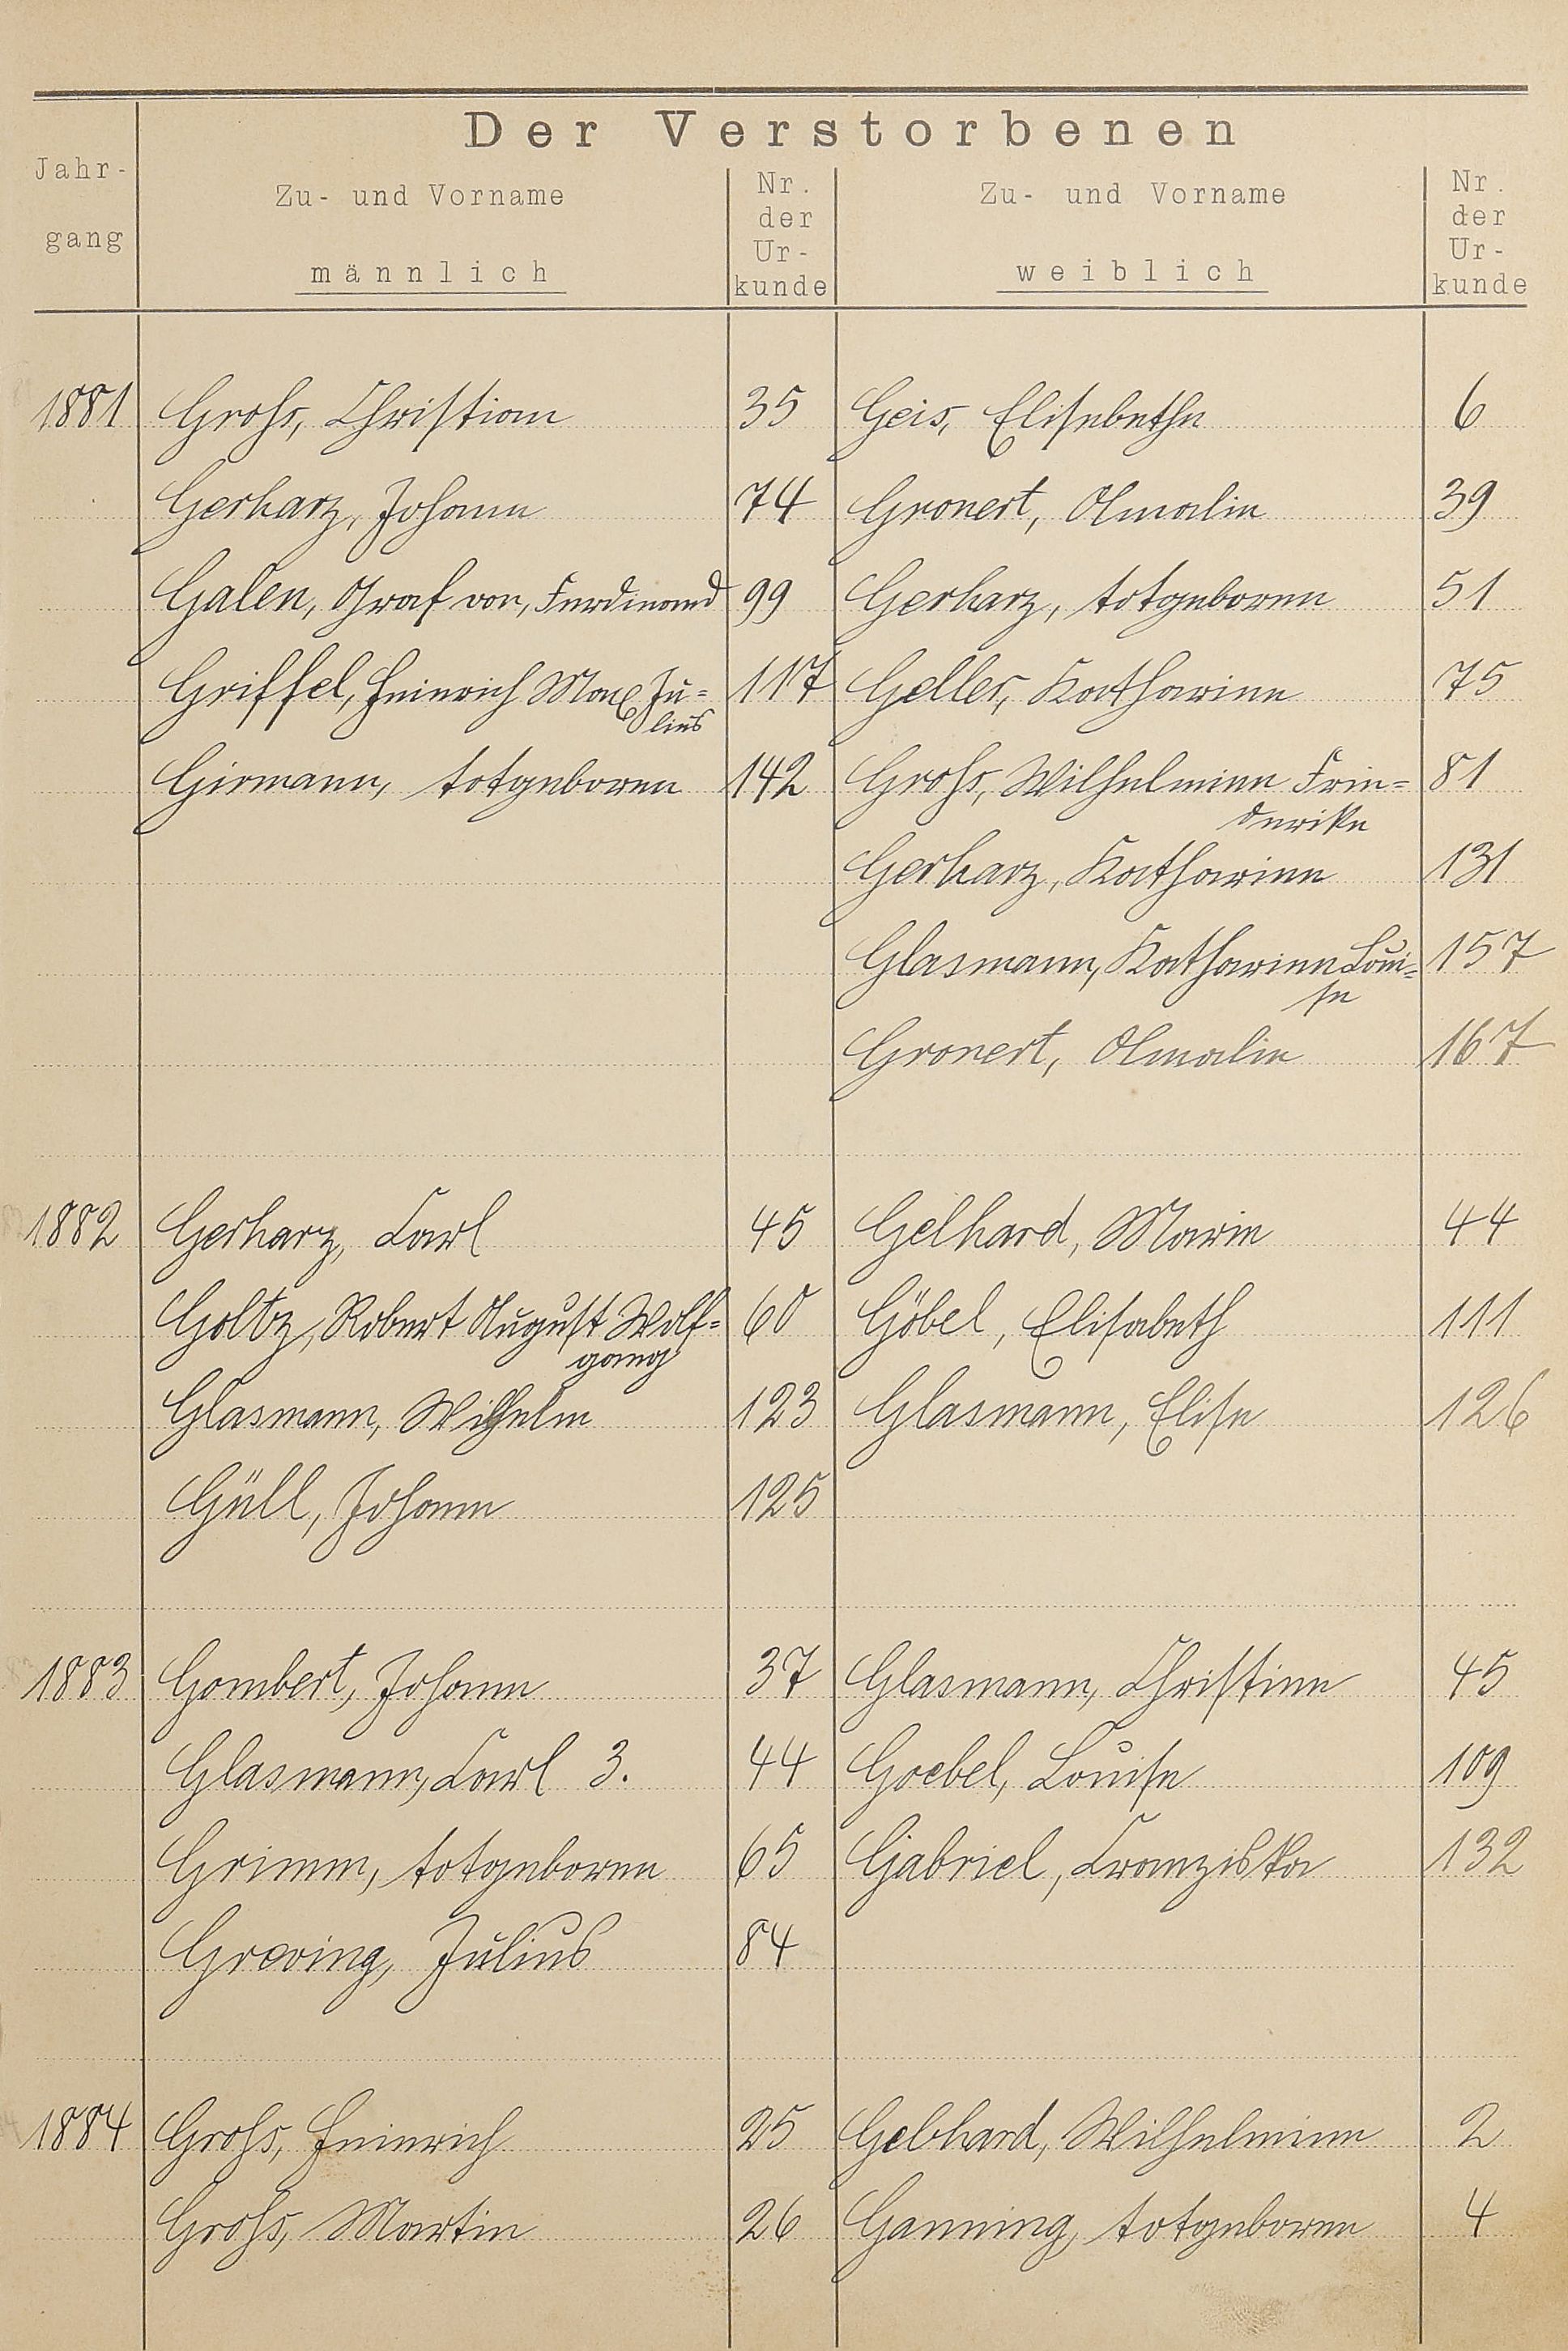 Der Verstorbenen
Jahr-
gang
Zu- und Vorname
männlich
Nr.
der
Ur-
kunde
Zu- und Vorname
weiblich
Nr.
der
Ur-
kunde
1881 Groß, Christian 35 Geis, Elisabethe 6
Gerharz, Johann 74 Gronert, Amalie 39
Galen, Graf von, Ferdinand 99 Gerharz, totgeboren 51
Griffel, Heinrich Max Ju= 117 Geller, Katharine 75
lius
Girmann, totgeboren 142 Groß, Wilhelmine Frie= 81
derike
Gerharz, Katharine 131
Glasmann, Katharine Loui= 157
se
Gronert, Amalie 167
1882 Gerharz, Carl 45 Gelhard, Marie 44
Goltz, Robert August Wolf= 60 Göbel, Elisabeth 111
gang
Glasmann, Wilhelm 123 Glasmann, Elise 126
Güll, Johann 125
1883 Gombert, Johann 37 Glasmann, Christine 45
Glasmann, Carl 3. 44 Goebel, Louise 109
Grimm, totgeboren 65 Gabriel, Franziska 132
Greving, Julius 84
1884 Groß, Heinrich 25 Gebhard, Wilhelmine 2
Groß, Martin 26 Ganning, totgeboren 4